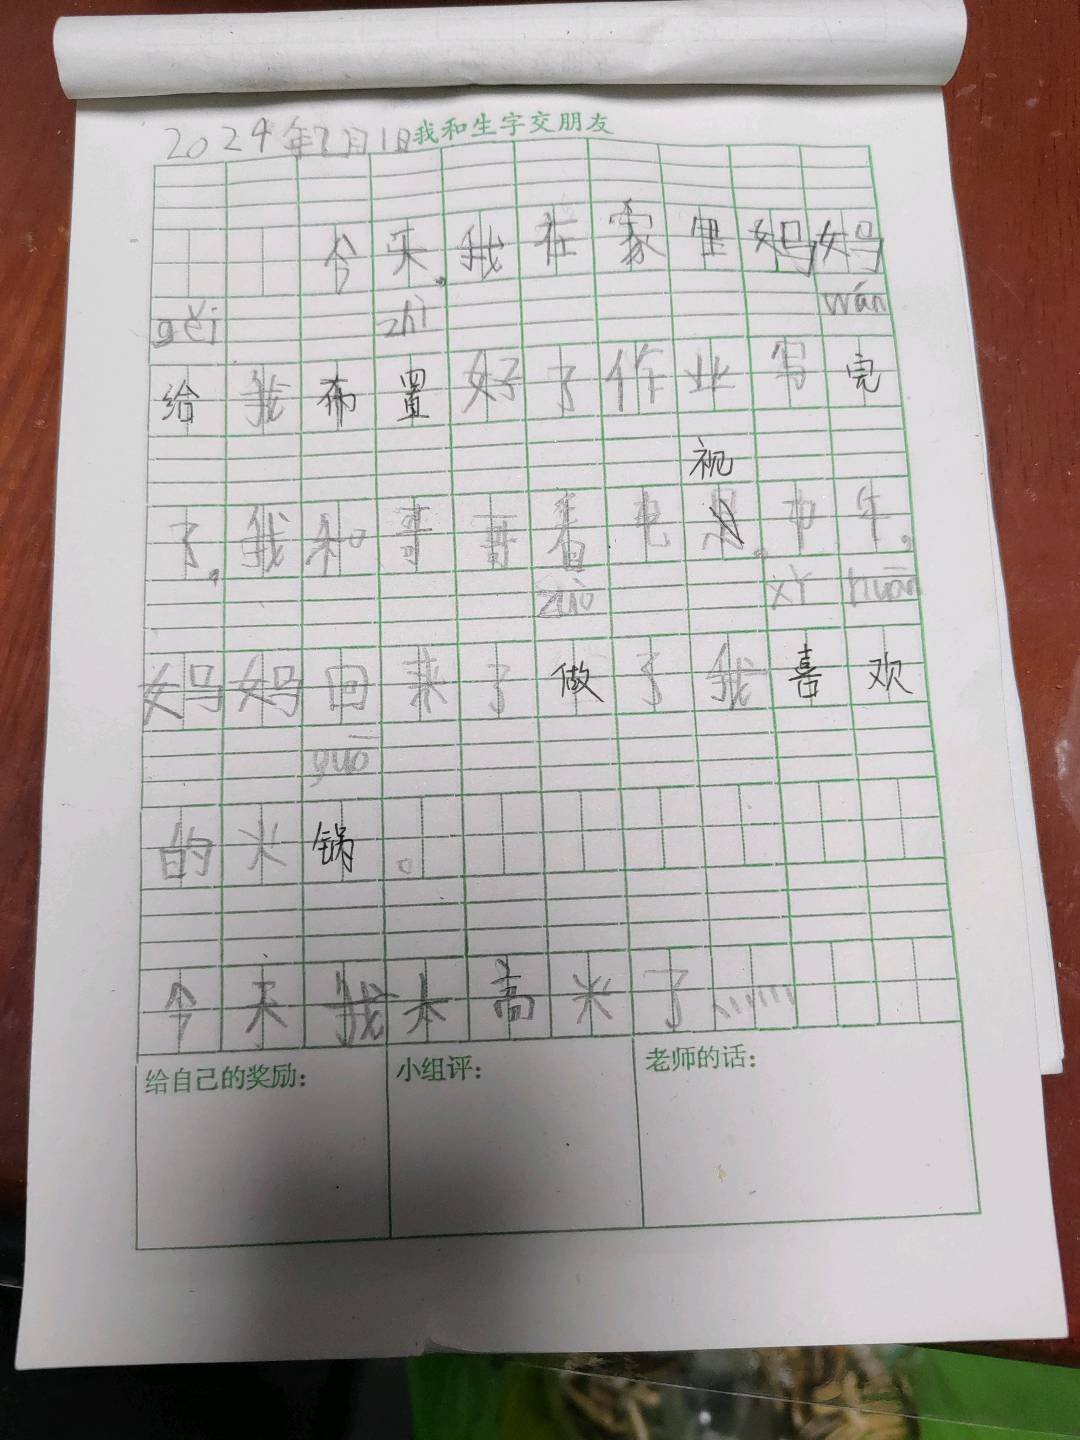 2024年7月1日我和生字交朋友
今天,我在家里妈妈
gěi zhì wán
给我布置好了作业写完
视
了,我和哥哥看电。中午,
zuò xǐ huān
妈妈回来了做了我喜欢
guō
的火锅。
今天我太高兴了……
给自己的奖励: 小组评: 老师的话: